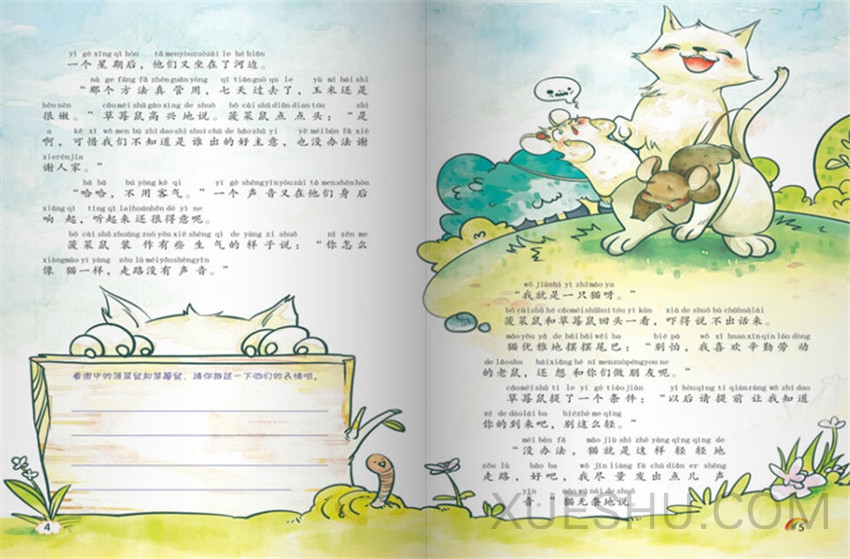 yī gè xīng qī hòu tā men yòu zuò zài le hé biān
一个星期后，他们又坐在了河边。
nà ge fāng fǎ zhēn guǎn yòng qī tiān guò qù le yù mǐ hái shì
“那个方法真管用，七天过去了，玉米还是
hěn nèn cǎo méi shǔ gāo xìng de shuō bō cài shǔ diǎn diǎn tóu shì
很嫩。”草莓鼠高兴地说。菠菜鼠点点头：“是
a kě xī wǒ men bù zhī dào shì shuí chū de hǎo zhǔ yi yě méi bàn fǎ xiè
啊，可惜我们不知道是谁出的好主意，也没办法谢
xie rén jia
谢人家。”
hā hā bú yòng kè qi yí gè shēng yīn yòu zài tā men shēn hòu
“哈哈，不用客气。”一个声音又在他们身后
xiǎng qǐ tīng qǐ lai huán hěn dé yì ne
响起，听起来还很得意呢。
bō cài shǔ zhuāng zuò yǒu xiē shēng qì de yàng zi shuō nǐ zěn me
菠菜鼠装作有些生气的样子说：“你怎么
xiàng māo yí yàng zǒu lù méi yǒu shēng yīn
像猫一样，走路没有声音。”
看图中的菠菜鼠和草莓鼠，请你描述一下他们的表情吧。
4
wǒ jiù shì yì zhī māo ya
“我就是一只猫呀。”
bō cài shǔ hé cǎo méi shǔ huí tóu yí kàn xià de shuō bù chū huà lái
菠菜鼠和草莓鼠回头一看，吓得说不出话来。
māo yōu yǎ de bǎi bǎi wěi ba bié pà wǒ xǐ huan xīn qín láo dòng
猫优雅地摆摆尾巴：“别怕，我喜欢辛勤劳动
de lǎo shǔ hái xiǎng hé nǐ men zuò péng you ne
的老鼠，还想和你们做朋友呢。”
cǎo méi shǔ tí le yí gè tiáo jiàn yǐ hòu qǐng tí qián ràng wǒ zhī dào
草莓鼠提了一个条件：“以后请提前让我知道
nǐ de dào lái ba bié zhè me qīng
你的到来吧，别这么轻。”
méi bàn fǎ māo jiù shì zhè yàng qīng qīng de
“没办法，猫就是这样轻轻地
zǒu lù hǎo ba wǒ jìn liàng fā chū diǎn er shēng
走路，好吧，我尽量发出点儿声
yīn māo wú nài de shuō
音。”猫无奈地说。
XUESHU.COM
5